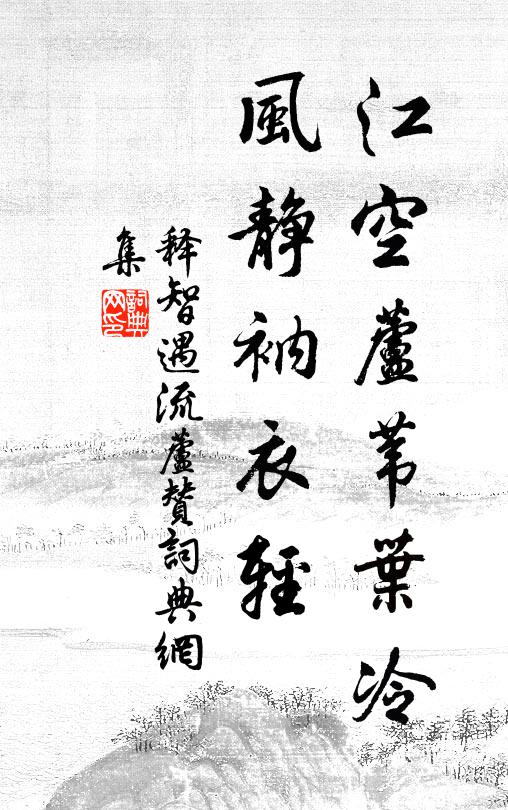 江空蘆苇葉冷
風静衲衣輕
释智遇流蘆赞詞典網
集
詞典网印